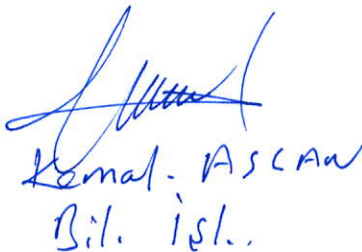 Kemal. ASCAN
Bil. İşl..